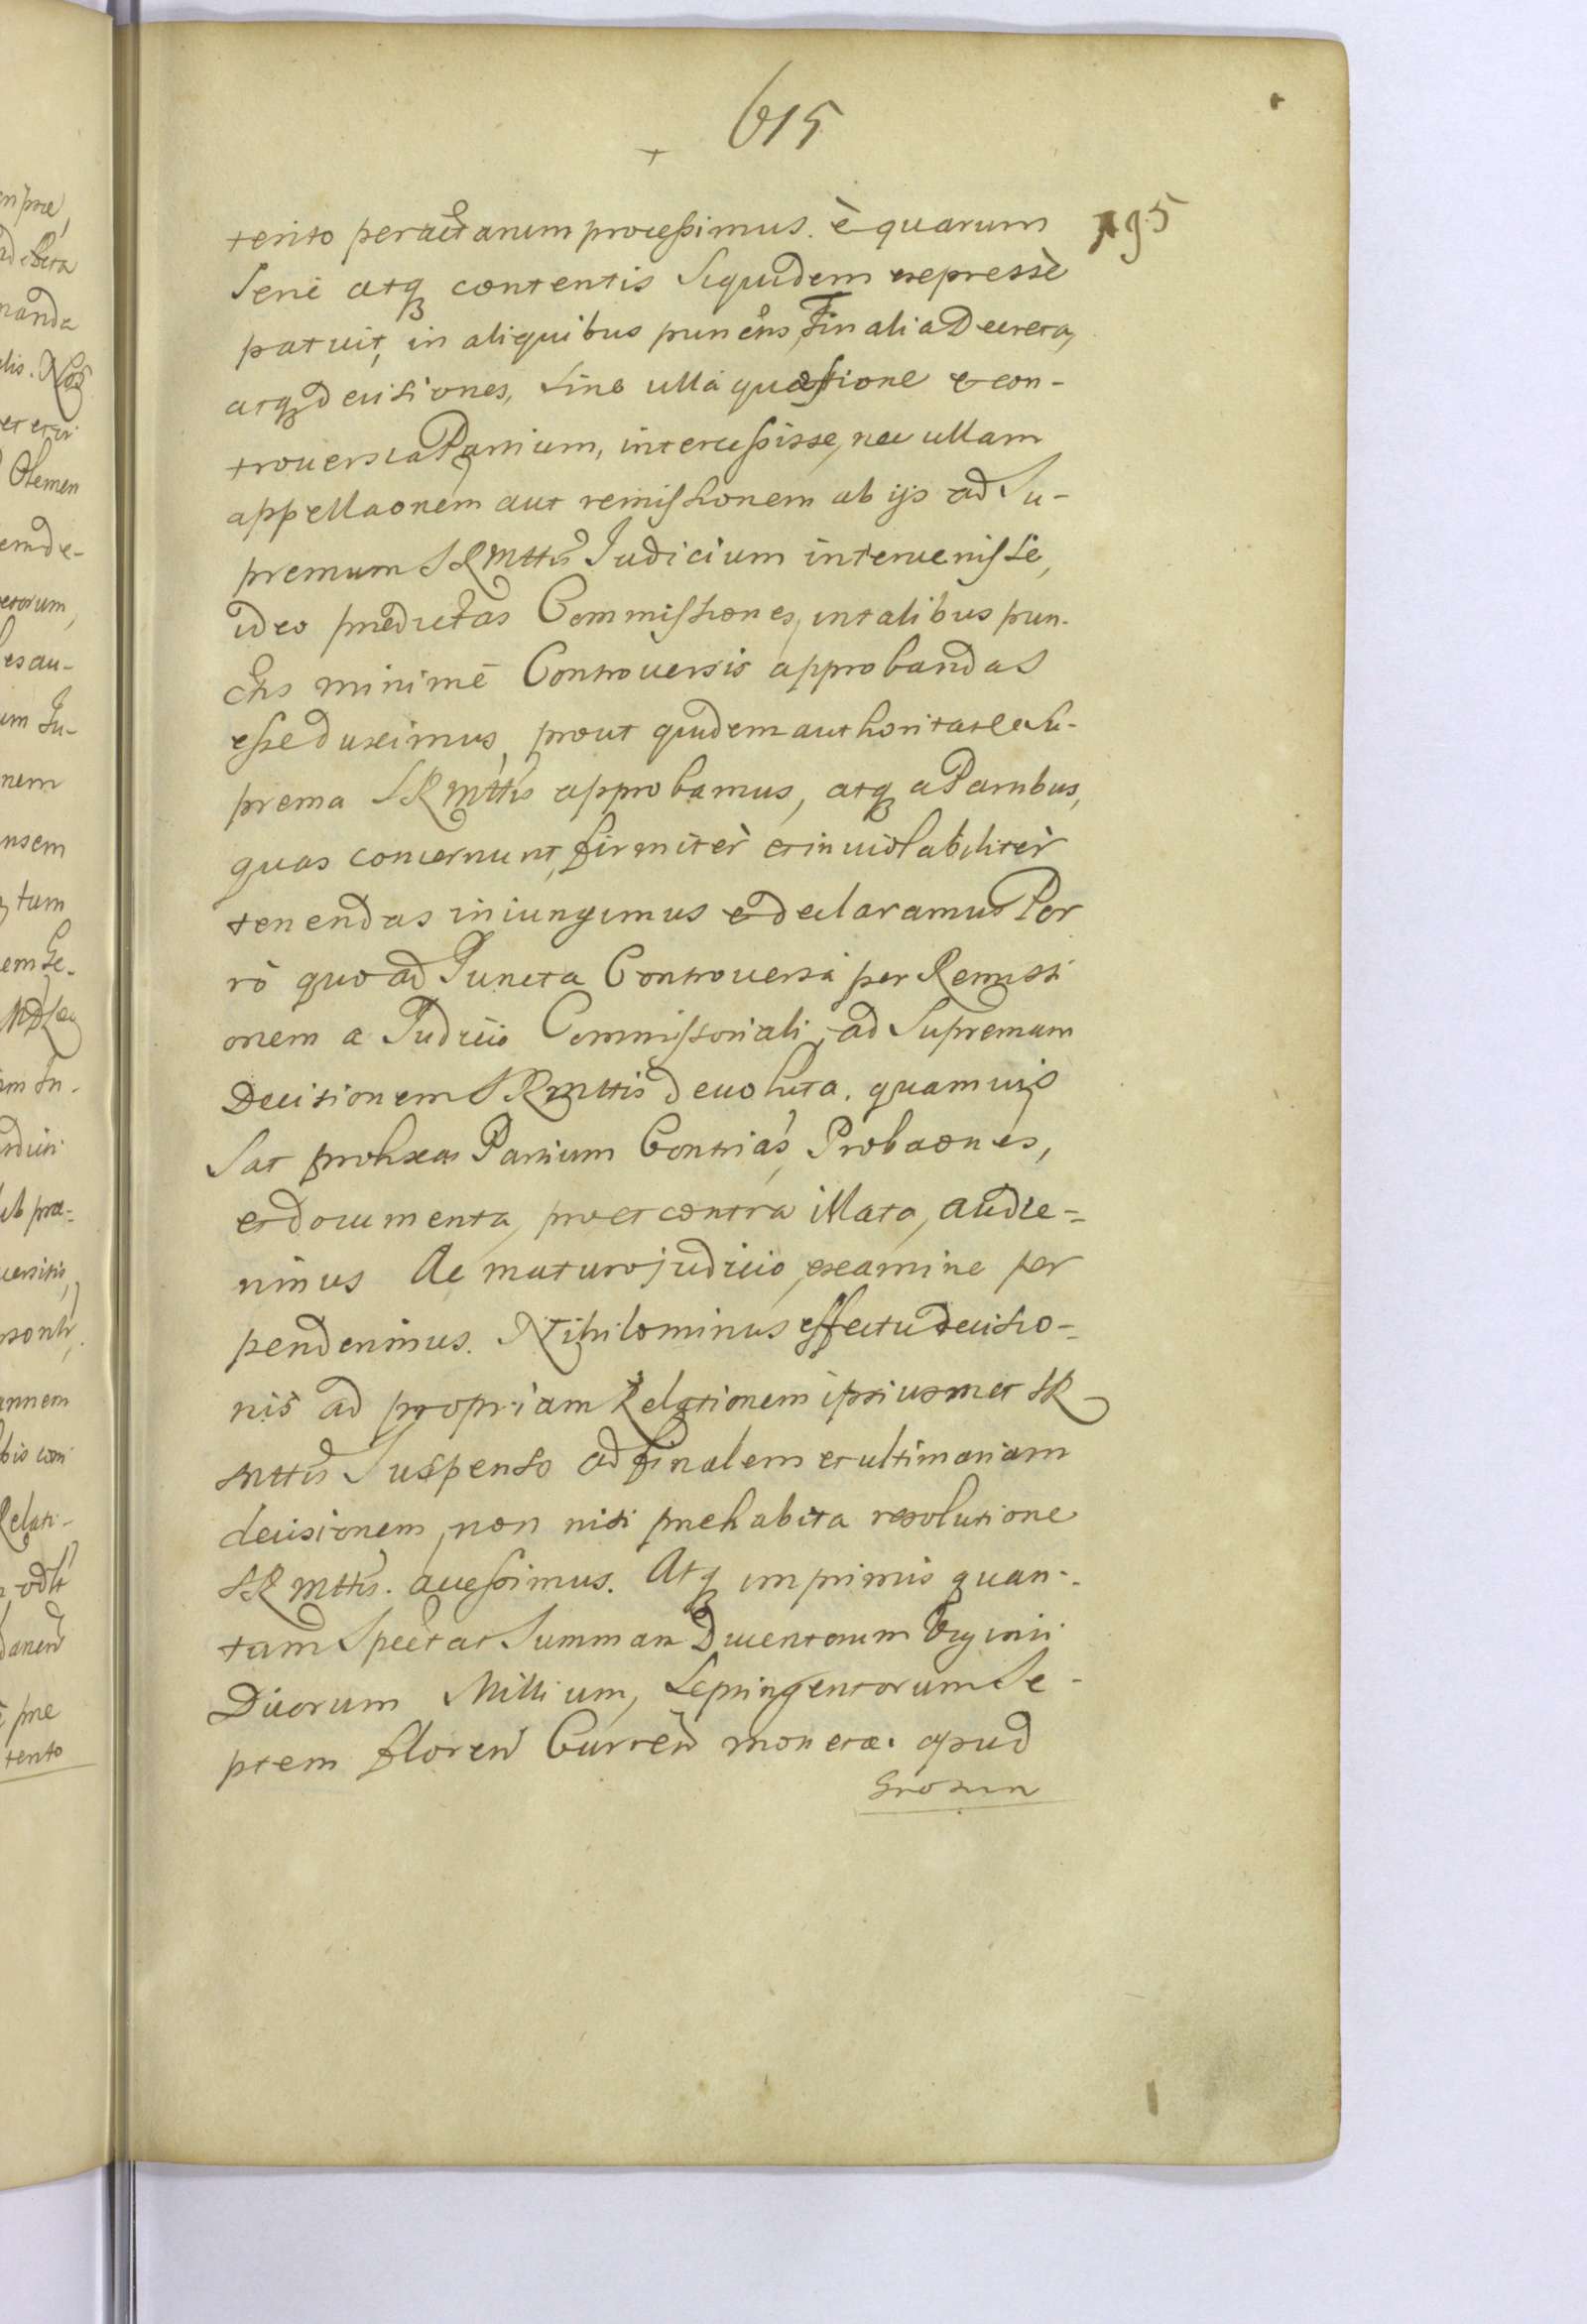 615
195
tento peractarum processimus. è quarum
Serie atq contentis Siquidem expressè
patuit, in aliquibus punctis, Finalia Decreta,
atq decisiones, sine ulla quæstione et con-
trouersia Partium, intercessisse, nec ullam
appellaonem aut remissionem ab ijs ad Su-
premum SRMttis Iudicium interuenisse,
ideo prædictas Commissiones, in talibus pun-
ctis minimè Controuersis approbandas
esse duximus, prout quidem authoritate Su-
prema SRMttis approbamus, atq a Partibus,
quas concernunt, firmitèr et inuiolabilitèr
tenendas iniungimus et declaramus Por
rò quo ad Puncta Controuersa per Remissi
onem a Iudicio Commissoriali, ad Supremam
Decisionem SRMttis deuoluta. quamuis
Sat prolixas Partium Contrias, Probaones,
et documenta, pro et contra illata, audie-
rimus Ac maturo judicio, examine per
penderimus. Nihilominus effectu decisio-
nis ad propriam Relationem ipsiusmet SR
Mttis Suspenso ad finalem et ultimariam
decisionem, non nisi præhabita resolutione
SRMttis. accessimus. Atq imprimis quan-
tum Spectat Summam Ducentorum Viginti
Duorum Millium, Septingentorum Se-
ptem floren Curren monetæ. apud
en præ,
nanda
emde-
nem
tum
annem
Relati-
præ
tento